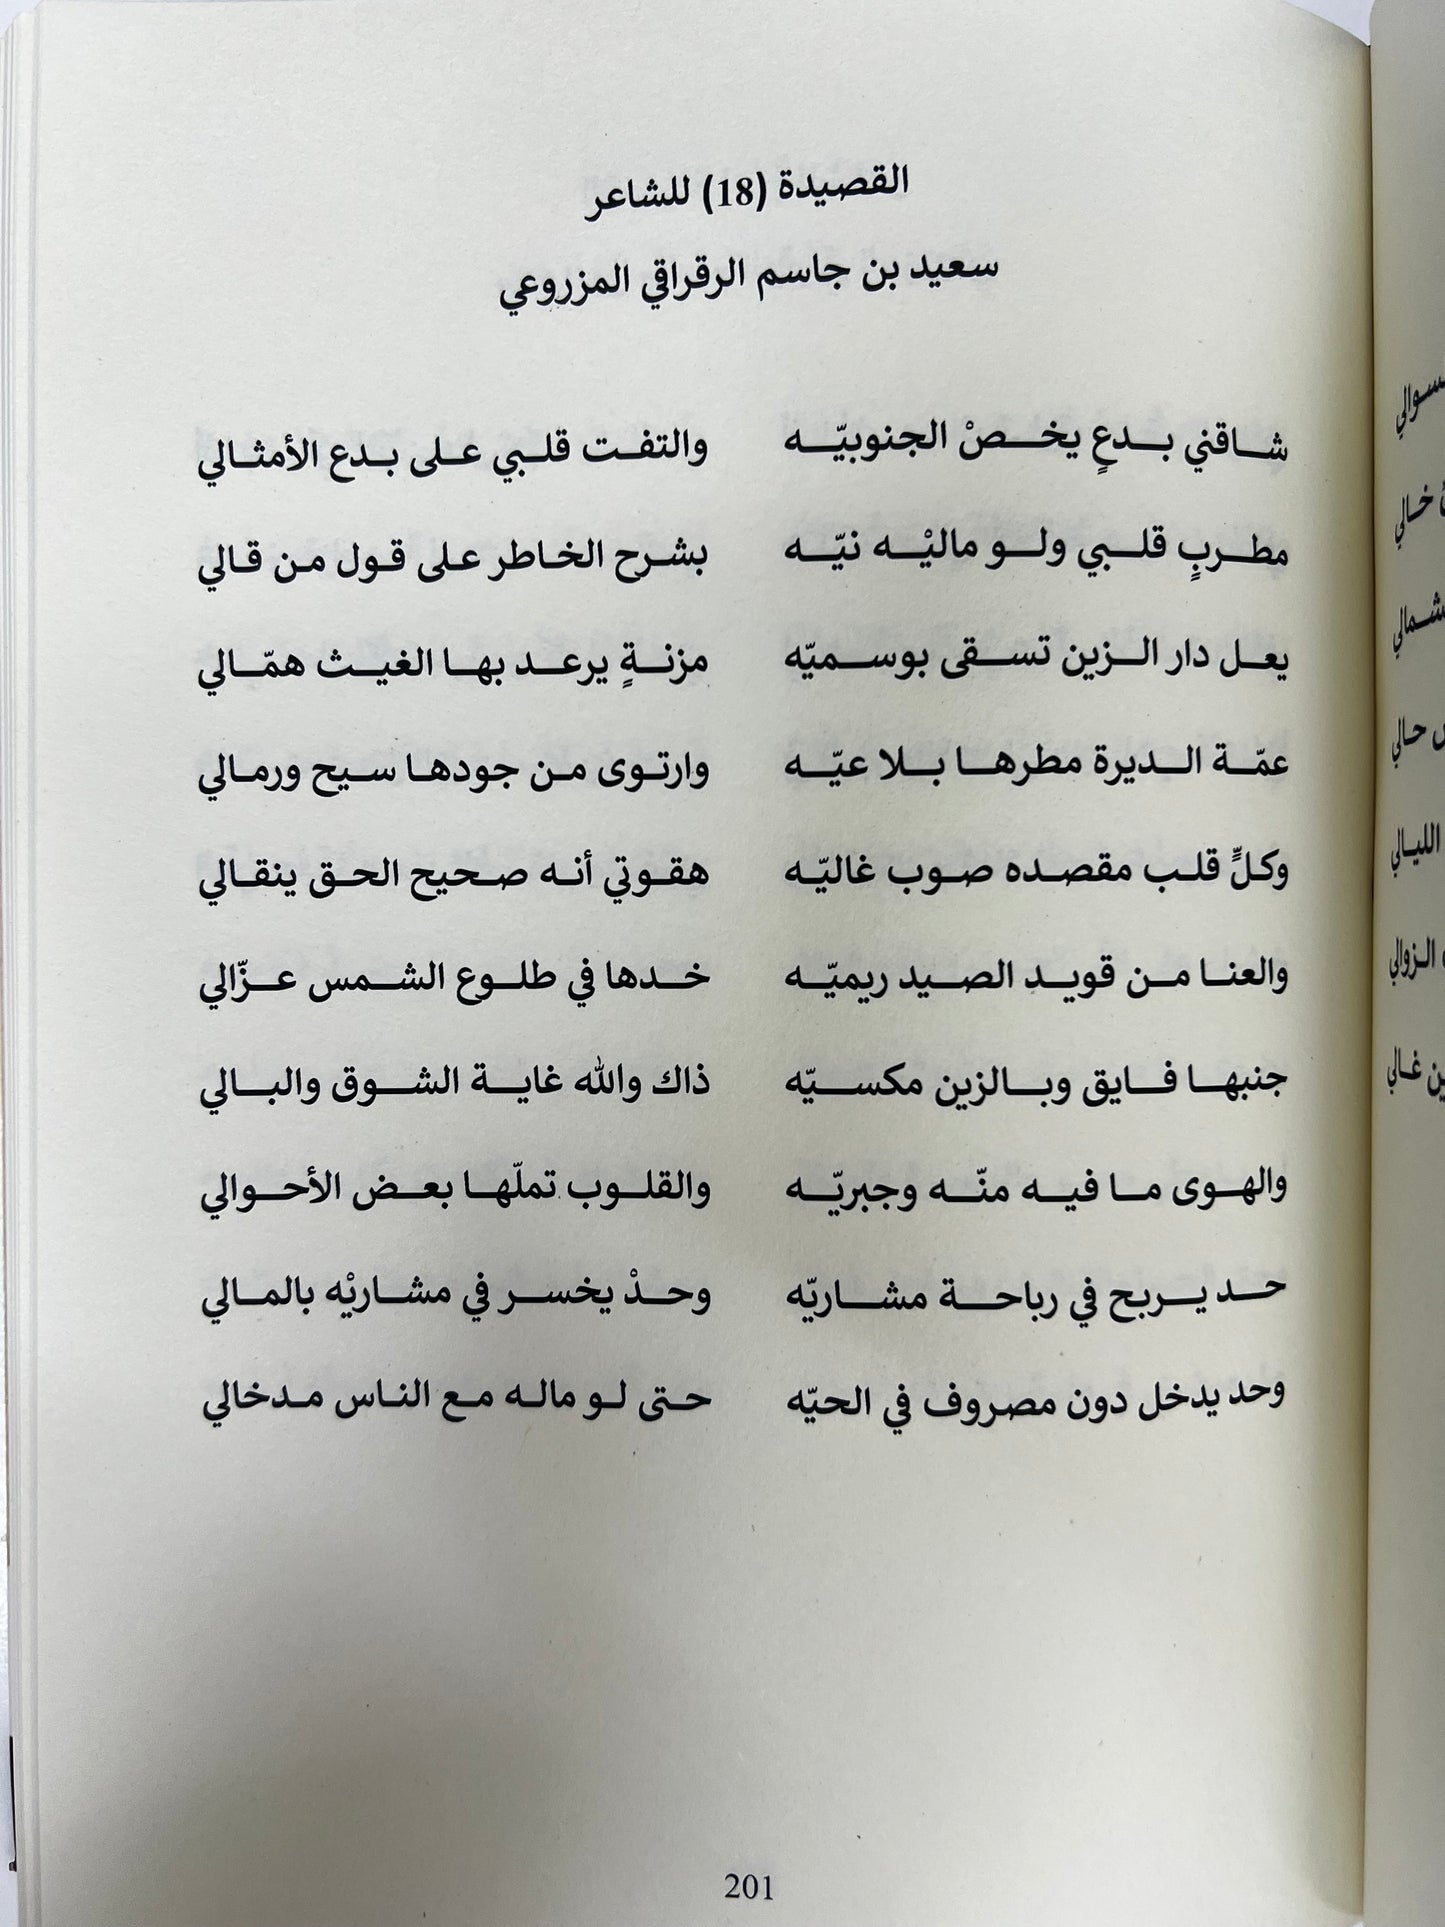 القصيدة (18) للشاعر
سعيد بن جاسم الرقراقي المزروعي
شاقني بدعٍ يخصْ الجنوبيّه والتفت قلبي على بدع الأمثالي
مطربٍ قلبي ولو ماليْه نيّه بشرح الخاطر على قول من قالي
يعل دار الزين تسقى بوسميّه مزنةٍ يرعد بها الغيث همّالي
عمّة الديرة مطرها بلا عيّه وارتوى من جودها سيح ورمالي
وكلٍّ قلب مقصده صوب غاليّه هقوتي أنه صحيح الحق ينقالي
والعنا من قويد الصيد ريميّه خدها في طلوع الشمس عزّالي
جنبها فايق وبالزين مكسيّه ذاك والله غاية الشوق والبالي
والهوى ما فيه منّه وجبريّه والقلوب تملّها بعض الأحوالي
حد يربح في رباحة مشاريّه وحدْ يخسر في مشاريْه بالمالي
وحد يدخل دون مصروف في الحيّه حتى لو ماله مع الناس مدخالي
201
سوالي
خالي
شمالي
حالي
الليالي
الزوالي
ين غالي